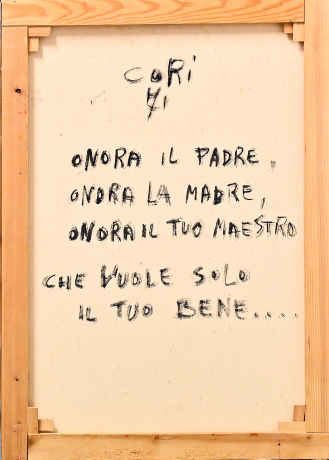 CORi
71
ONORA IL PADRE,
ONORA LA MADRE,
ONORA IL TUO MAESTRO
CHE VUOLE SOLO
IL TUO BENE....